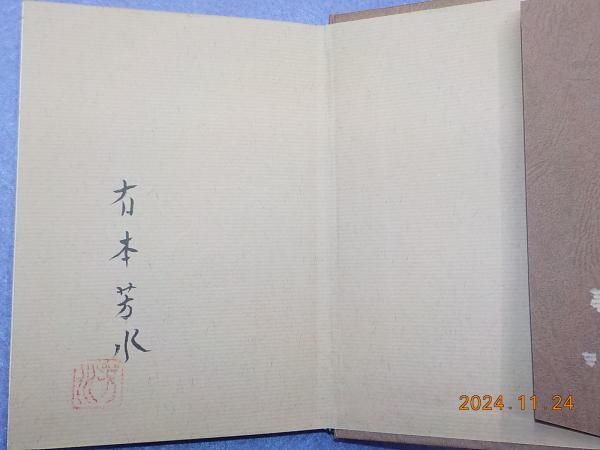 有本芳水
2024.11.24